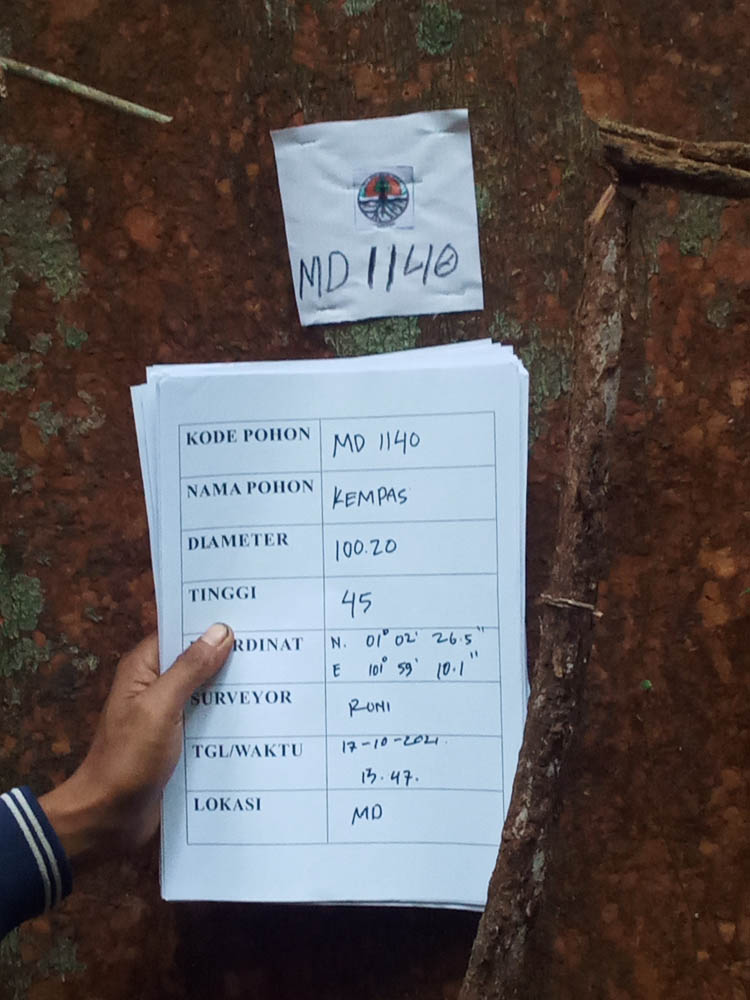 MD 1140
KODE POHON MD 1140
NAMA POHON KEMPAS
DIAMETER 100.20
TINGGI 45
RDINAT N. 01° 02' 26.5"
E 101° 59' 10.1"
SURVEYOR RONI
TGL/WAKTU 17-10-2021.
13.47.
LOKASI MD